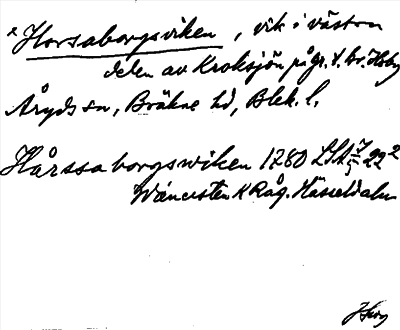 x Horsaborgsviken, vik i västra
delen av Kroksjön på gr. t. Br. Hoby
Åryds sn, Bräkne hd, Blek. l.
Hårssaborgswiken 1780 LSA 22²
K Råg. Hässeldala